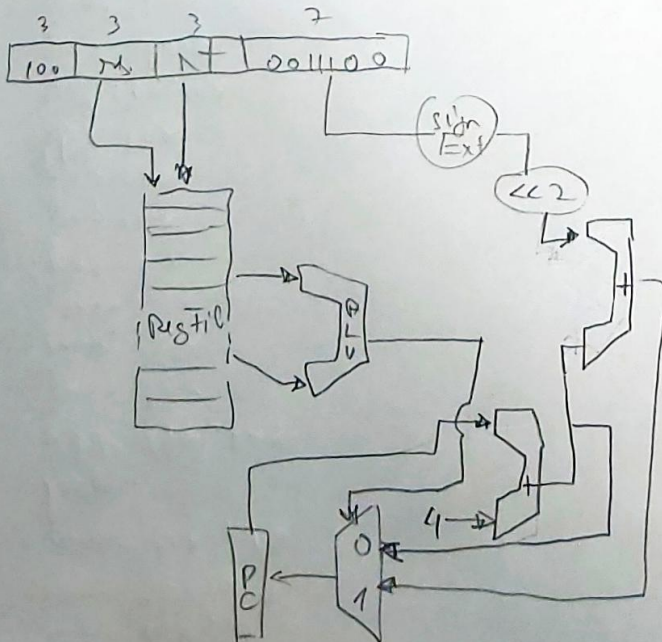 3 3 3 7
100 rs rt 0011100
sign
Ext
<<2
+
RegFil
ALU
+
4
0
1
PC